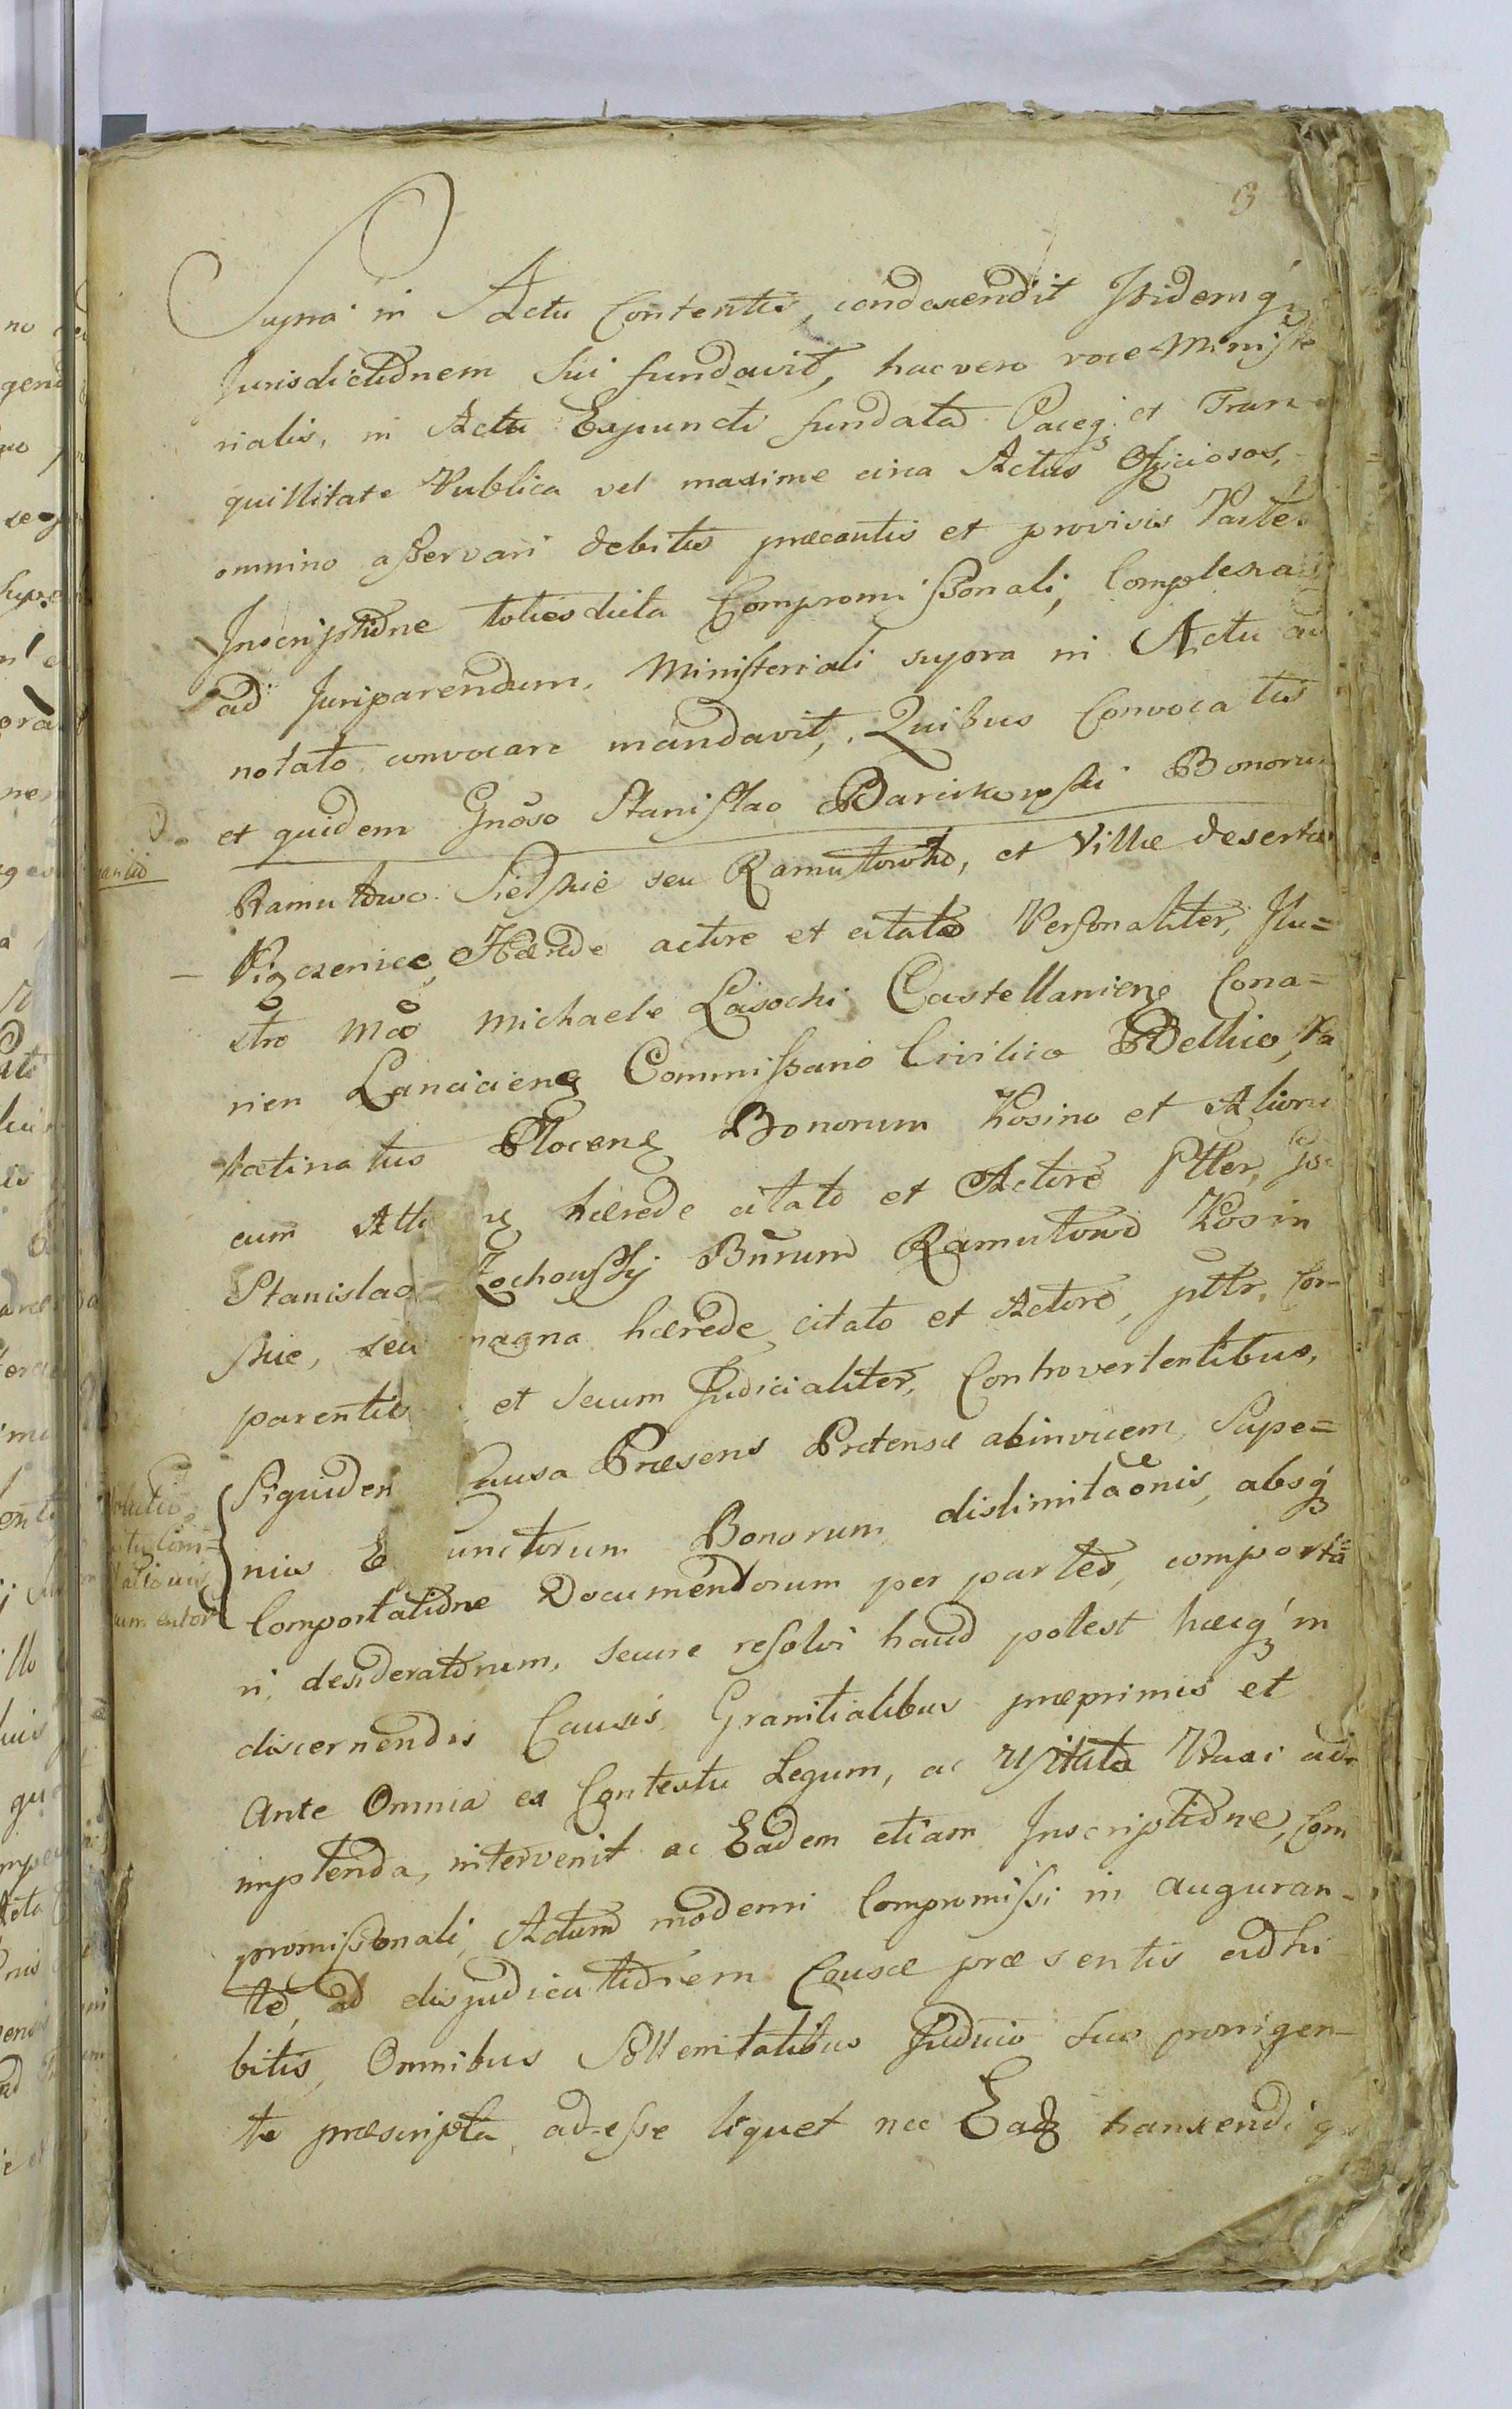 3
Supra in Actu Contentis, condescendit Ibidemq;
Jurisdictionem sui fundavit, hac vero voce Ministe
rialis, in Actu Expuncti fundata Paceq; et Tran-
quillitate Publica vel maxime circa Actus Officiosos,
omnino asservari debitis præcautis et provisis Partes
Inscriptione toties dicta Compromissionali, Complexas
ad Juriparendum, Ministeriali supra in Actu ad
notato convocare mandavit, Quibus Convocatis
et quidem Gnoso Stanislao Barcikowski Bonorum
Ramutowo Sielskie seu Ramutowko, et Villæ desertæ
Pigczenice, Hærede actore et citato Personaliter, Illu=
stro Mco Michaele Lasocki Castellanieng Cona=
rien Lancicieng Commissario Civilico Bellico, Pa
latinatus Ploceng Bonorum Kosino et Alioru
cum hærede citato et Actore Ptler,
Stanislao Zochowskij Bnrum Ramutowo Kosin
skie, seu magna hærede citato et Actore, pttr, Com-
parentis et secum Judicialiter, Controvertentibus,
Siquidem Causa Præsens Prætensæ abinvicem, Supe=
rius unctorum Bonorum dislimitaonis, absq;
Comportatione Documentorum per partes, comporta
ri, desideratorum, secure resolvi haud potest hæcq; in
discernendis Causis Granitialibus præprimis et
Ante Omnia ex Contextu Legum, ac Usitata Praxi adi
mplenda, intervenit ac Eadem etiam Inscriptione, Com
promissionali, Actum moderni Compromissi in auguran-
te, ad disjudicationem Causæ præsentis adhi
bitis, Omnibus Sollenitatibus Judicio suo prorigen-
te præscripta, ad-esse liquet nec Eadz transcendi